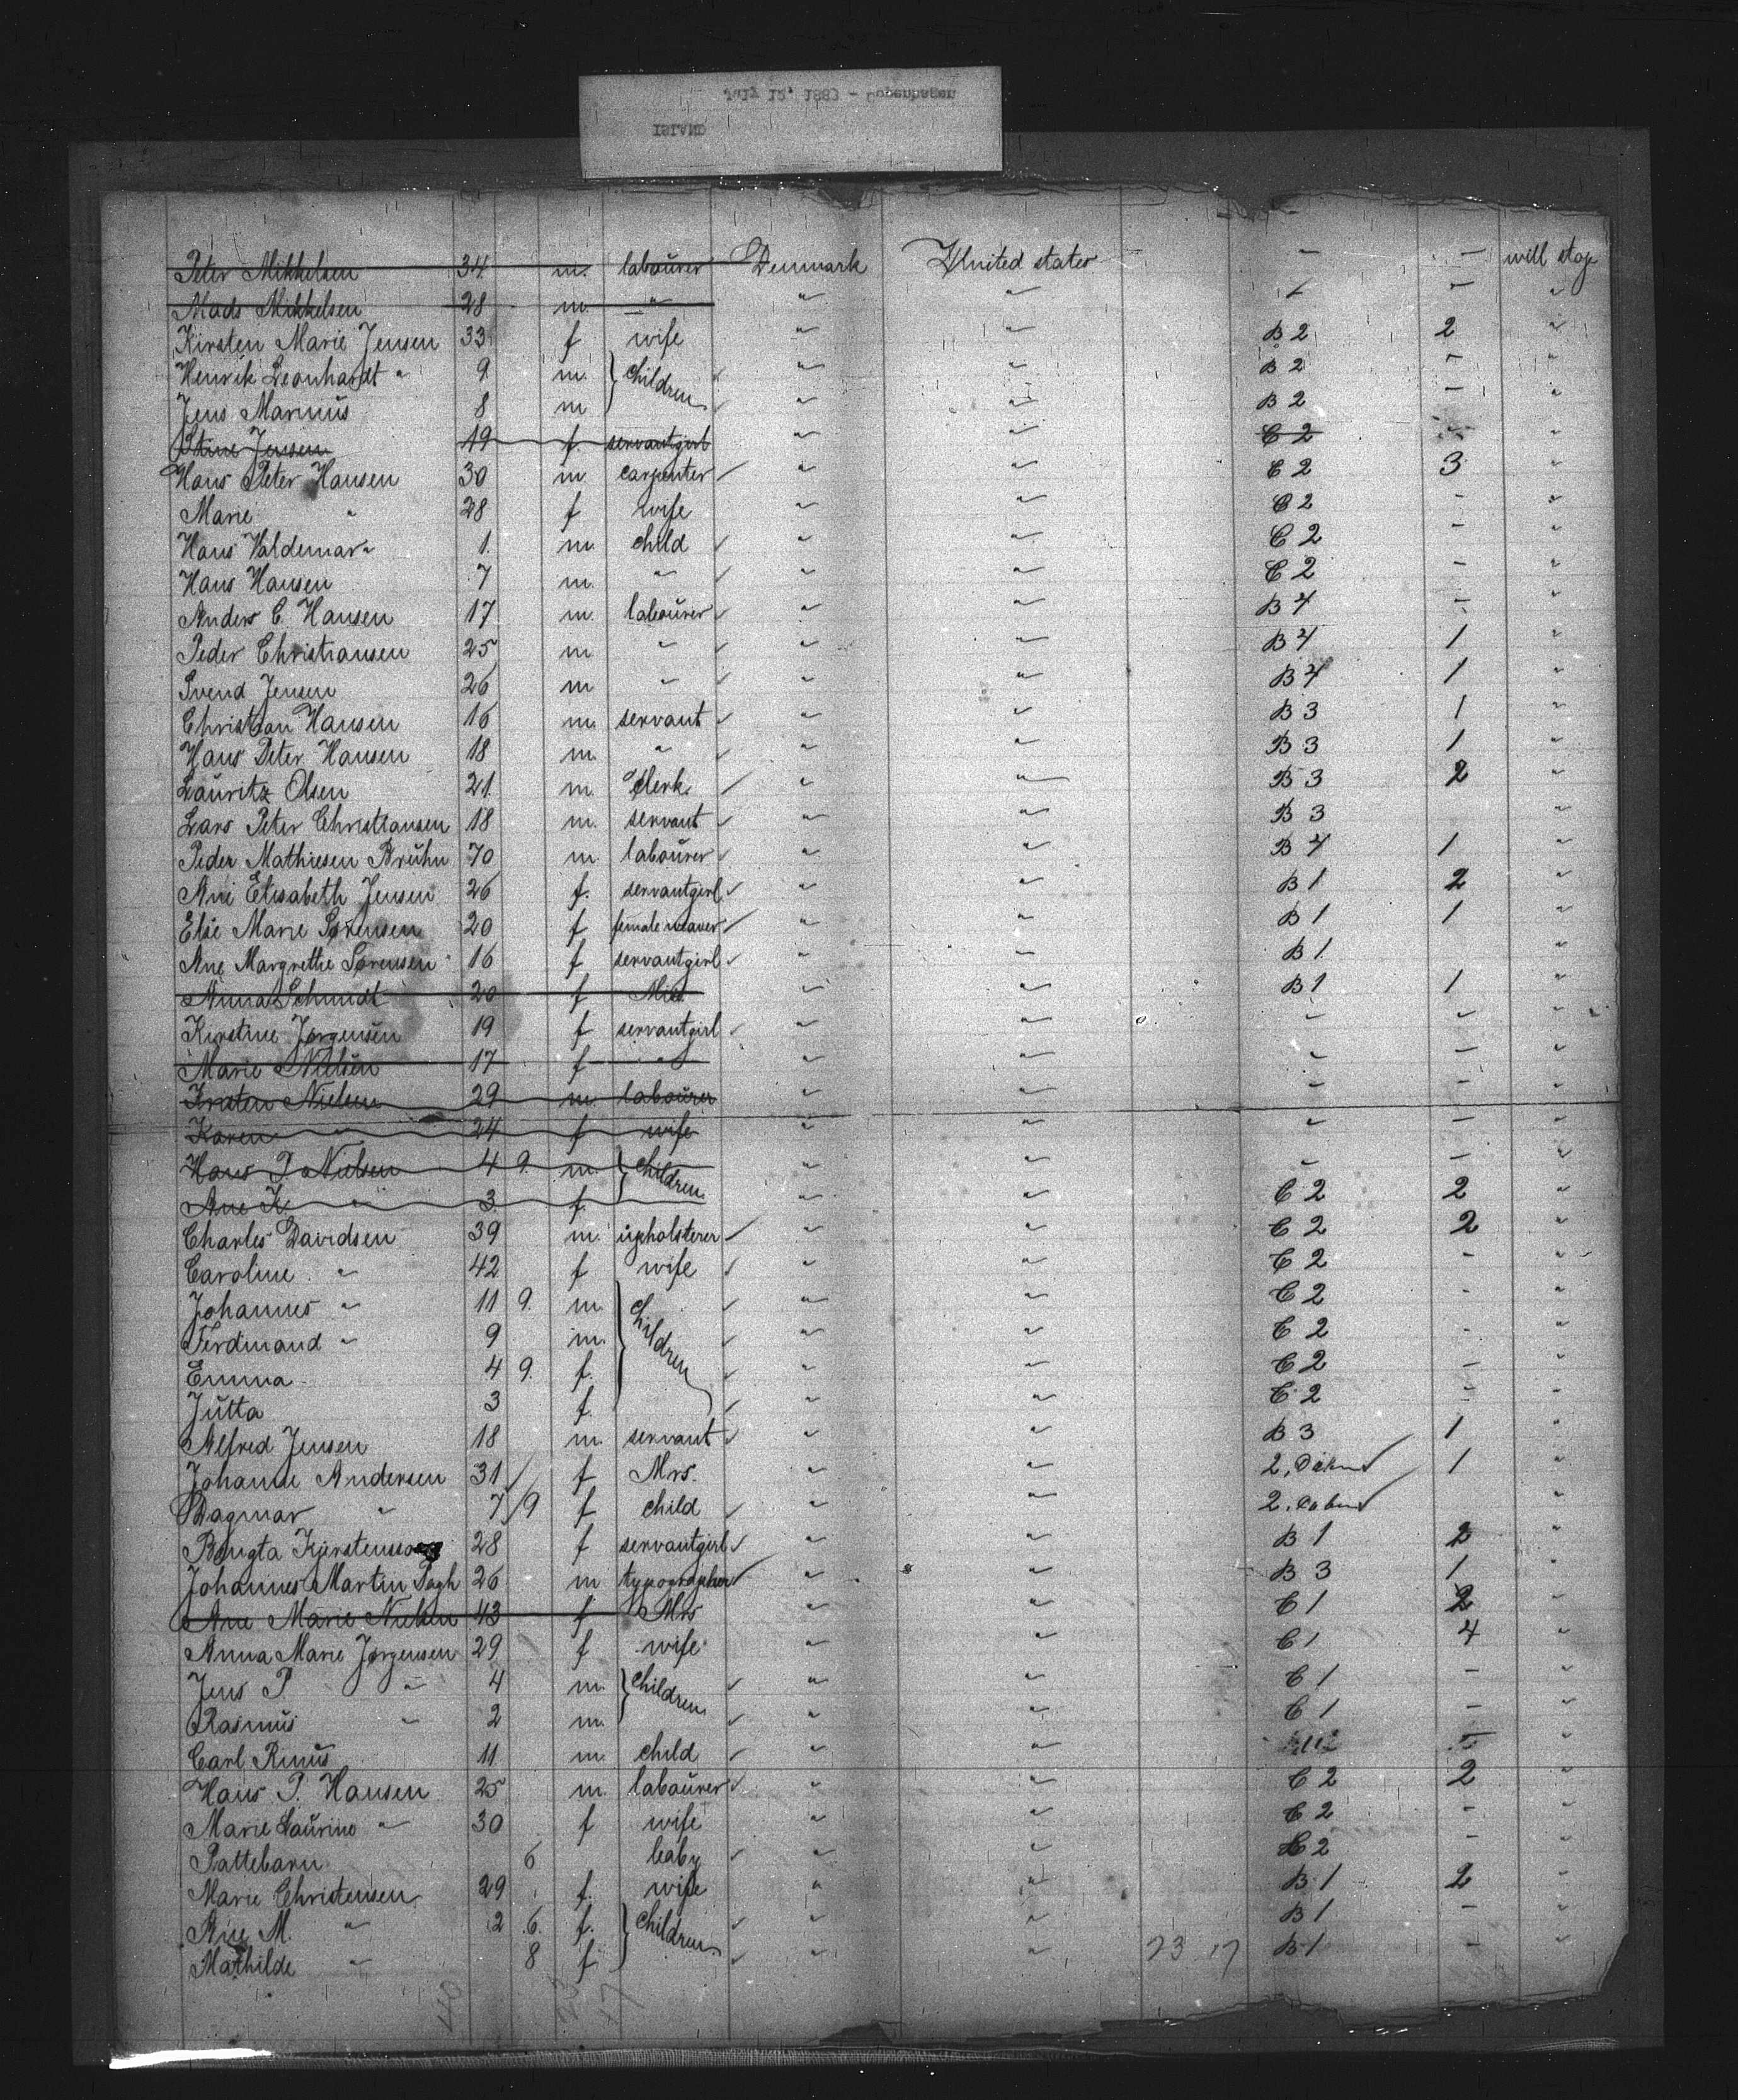 July 12, 1883 - Copenhagen
ISLAND
Peter Mikkelsen 34 m. laboürer Denmark United states - - will stop
Mads Mikkelsen 28 m. " " " - - "
Kirsten Marie Jensen 33 f wife " " B 2 2 "
Henrik Leonhardt " 9 m. } children " " B 2 - "
Jens Marinüs 8 m " " B 2 - "
Stine Jensen 19 f. servantgirl " " C 2 "
Hans Peter Hansen 30 m. carpenter " " C 2 3 "
Marie " 28 f wife " " C 2 - "
Hans Valdemar " 1. m. child " " C 2 - "
Hans Hansen 7 m. " " " C 2 - "
Anders C. Hansen 17 m. laboürer " " B 4 - "
Peder Christiansen 25 m " " " B 4 1 "
Svend Jensen 26 m " " " B 4 1 "
Christian Hansen 16 m. servant " " B 3 1 "
Hans Peter Hansen 18 m. " " " B 3 1 "
Laüritz Olsen 21. m. Clerk " " B 3 2 "
Lars Peter Christiansen 18 m. servant " " B 3 "
Peder Mathiesen Brühn 70 m. laboürer " " B 4 1 "
Ane Elisabeth Jensen 26 f. servantgirl " " B 1 2 "
Else Marie Sørensen 20 f female weaver " " B 1 1 "
Ane Margrethe Sørensen 16 f servantgirl " " B 1 "
Anna Schmidt 20 f Miss " " B 1 1 "
Kirstine Jørgensen 19 f servantgirl " " " " "
Marie Nielsen 17 f " " " " - "
Nielsen 29 m. laboürer " " - - "
Karen " 24 f wife " " " - "
Hans P. Nielsen 4 9. m. } children " " - - "
Ane K. " 3 f. " " C 2 2 "
Charles Davidsen 39 m. üpholsterer " " C 2 2 "
Caroline " 42 f wife " " C 2 - "
Johannes " 11 9. m. } children " " C 2 - "
Ferdinand " 9 m. " " C 2 - "
Emma 4 9. f. " " C 2 - "
Jütta 3 f. " " C 2 - "
Alfred Jensen 18 m. servant " " B 3 1 "
Johanne Andersen 31 f Mrs. " " 2. 1 "
Dagmar " 7/9 f child " " 2. "
Bengta 28 f servantgirl " " B 1 2 "
Johannes Martin Pagh 26 m typographer " " B 3 1 "
Ane Marie Nielsen 43 f Mrs " " C 1 2 "
Anna Marie Jørgensen 29 f wife " " C 1 4 "
Jens P. " 4 m. } children " " C 1 - "
Rasmüs " 2 m. " " C 1 - "
Carl Rinüs 11 m. child " " "
Hans P. Hansen 25 m. laboürer " " C 2 2 "
Marie Laürine " 30 f wife " " C 2 - "
Pattebarn 6 baby " " C 2 - "
Marie Christensen 29 f. wife " " B 1 2 "
Ane M. " 2 6. f. } children " " B 1 - "
Mathilde " 8 f " " 23 17 B 1 - "
40 23 17